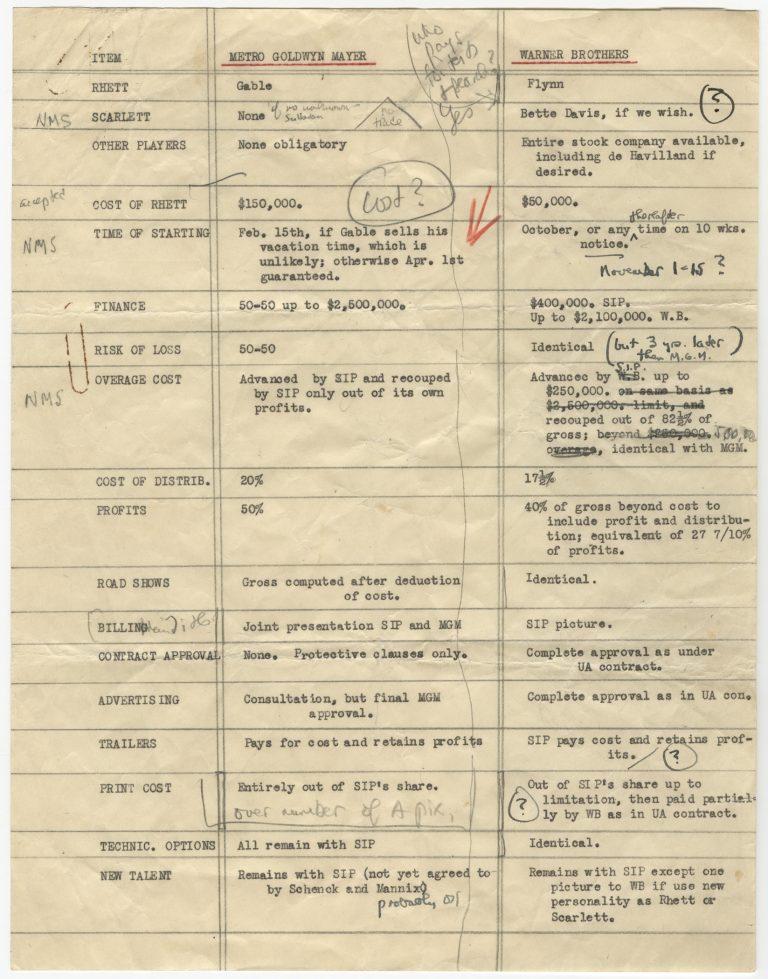 ITEM
METRO GOLDWYN MAYER
WARNER BROTHERS
who
pays
Yes
RHETT
Gable
Flynn
NMS
SCARLETT
None
if no unknown
no
trace
Bette Davis, if we wish.
?
OTHER PLAYERS
None obligatory
Entire stock company available,
including de Havilland if
desired.
accepted
COST OF RHETT
$150,000.
cost?
$50,000.
NMS
TIME OF STARTING
Feb. 15th, if Gable sells his
vacation time, which is
unlikely; otherwise Apr. 1st
guaranteed.
thereafter
October, or any ^ time on 10 wks.
notice.
November 1-15 ?
FINANCE
50-50 up to $2,500,000.
$400,000. SIP.
Up to $2,100,000. W.B.
RISK OF LOSS
50-50
Identical (but 3 yrs. later
than M.G.M.)
NMS
OVERAGE COST
Advanced by SIP and recouped
by SIP only out of its own
profits.
S.I.P.
Advanced by W.B. up to
$250,000. on same basis as
$2,500,000. limit, and
recouped out of 82½% of
gross; beyond $250,000.
overage, identical with MGM.
COST OF DISTRIB.
20%
17½%
PROFITS
50%
40% of gross beyond cost to
include profit and distribu-
tion; equivalent of 27 7/10%
of profits.
ROAD SHOWS
Gross computed after deduction
of cost.
Identical.
BILLING
Joint presentation SIP and MGM
SIP picture.
CONTRACT APPROVAL
None. Protective clauses only.
Complete approval as under
UA contract.
ADVERTISING
Consultation, but final MGM
approval.
Complete approval as in UA con.
TRAILERS
Pays for cost and retains profits
SIP pays cost and retains prof-
its.
?
PRINT COST
Entirely out of SIP's share.
over number of A pix.
?
Out of SIP's share up to
limitation, then paid partial-
ly by WB as in UA contract.
TECHNIC. OPTIONS
All remain with SIP
Identical.
NEW TALENT
Remains with SIP (not yet agreed to
by Schenck and Mannix)
probably
Remains with SIP except one
picture to WB if use new
personality as Rhett or
Scarlett.